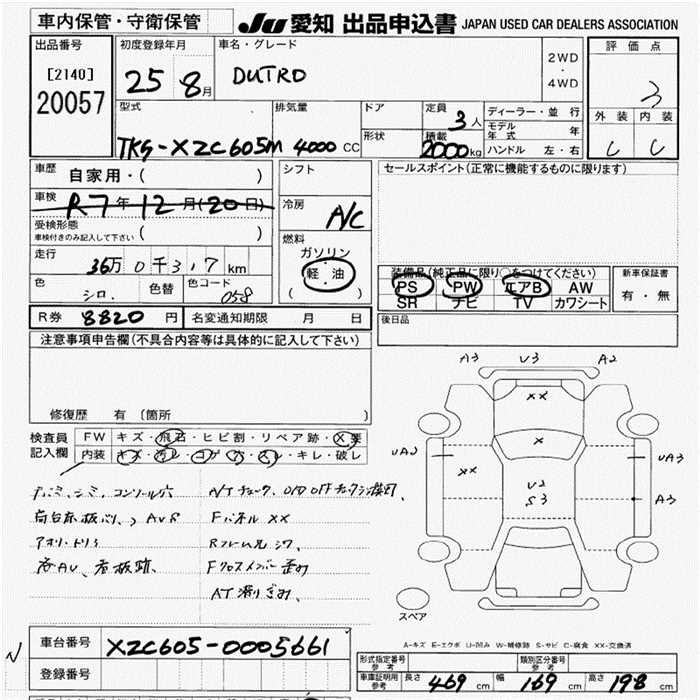 車内保管・守衛保管 JU 愛知 出品申込書 JAPAN USED CAR DEALERS ASSOCIATION
出品番号
[2140]
20057
初度登録年月
25 8月
車名・グレード
DUTRO
2WD
・
4WD
評価点
3
外装 内装
C C
型式
TKG-XZC605M
排気量
4000 CC
ドア
形状
定員
3人
積載
2000kg
ディーラー・並行
モデル年式 年
ハンドル 左・右
車歴 自家用・( )
車検 R7年12月(20日)
受検形態
車検付きのみ記入して下さい ( )
走行
36万0千317km
色
シロ.
色替
色コード
058
シフト
冷房
A/C
燃料
ガソリン
・
軽油
( )
セールスポイント(正常に機能するものに限ります)
装備品(純正品に限り○をつけてください)
PS PW エアB AW
SR ナビ TV カワシート
新車保証書
有・無
後日品
R券 8820 円 名変通知期限 月 日
注意事項申告欄(不具合内容等は具体的に記入して下さい)
修復歴 有(箇所 )
検査員記入欄
FW キズ・飛石・ヒビ割・リペア跡・X要
内装 キズ・汚レ・コゲ・穴・スレ・キレ・破レ
シミ、コンソール穴
A/Tチェック、O/D OFF
Fパネル XX
アオリ・ドリ
Rフレーム
看板跡
Fクロスメンバー歪み
AT滑りぎみ
A3 U3 A2
XX
X
UA2
XX
U2
S3
UA3
A3
スペア
A-キズ E-エクボ U-凹み W-補修跡 S-サビ C-腐食 XX-交換済
車台番号 XZC605-0005661
登録番号
型式指定番号
参考
類別区分番号
参考
車庫証明用
参考
長さ 469 cm 幅 169 cm 高さ 198 cm